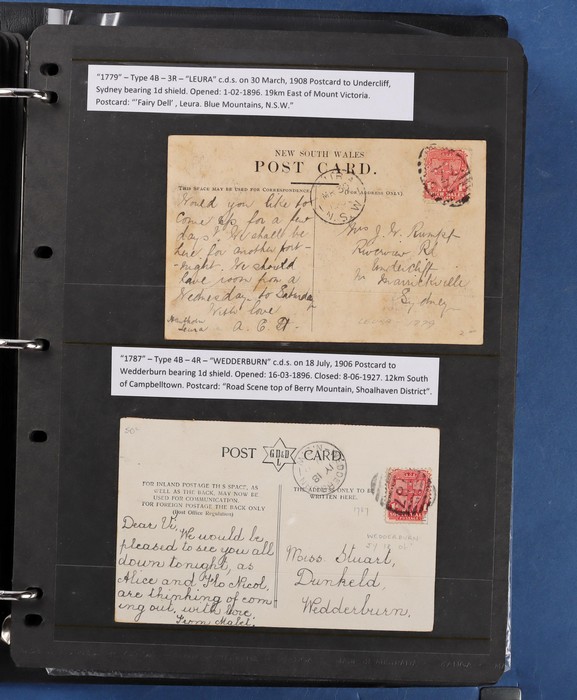 "1779" – Type 4B – 3R – "LEURA" c.d.s. on 30 March, 1908 Postcard to Undercliff,
Sydney bearing 1d shield. Opened: 1-02-1896. 19km East of Mount Victoria.
Postcard: "'Fairy Dell', Leura. Blue Mountains, N.S.W."
NEW SOUTH WALES
POST CARD.
THIS SPACE MAY BE USED FOR CORRESPONDENCE
(FOR ADDRESS ONLY)
Would you like to
come up for a few
days? We shall be
here for another fort-
-night. We should
have room from a
Wednesday to Saturday
With love
Leura A.E.
Mrs J. W. Rumpf
Riverview Rd
Undercliff
Nr Marrickville
Sydney
"1787" – Type 4B – 4R – "WEDDERBURN" c.d.s. on 18 July, 1906 Postcard to
Wedderburn bearing 1d shield. Opened: 16-03-1896. Closed: 8-06-1927. 12km South
of Campbelltown. Postcard: "Road Scene top of Berry Mountain, Shoalhaven District".
POST GD&D L CARD
FOR INLAND POSTAGE THIS SPACE, AS
WELL AS THE BACK, MAY NOW BE
USED FOR COMMUNICATION.
FOR FOREIGN POSTAGE THE BACK ONLY
(Post Office Regulation)
THE ADDRESS ONLY TO BE
WRITTEN HERE.
JY 18
1787
WEDDERBURN
Dear Vi,
We would be
pleased to see you all
down tonight, as
Alice and Flo Nicol.
are thinking of com
ing out. with love
From Mabel.
Miss. Stuart,
Dunkeld,
Wedderburn.